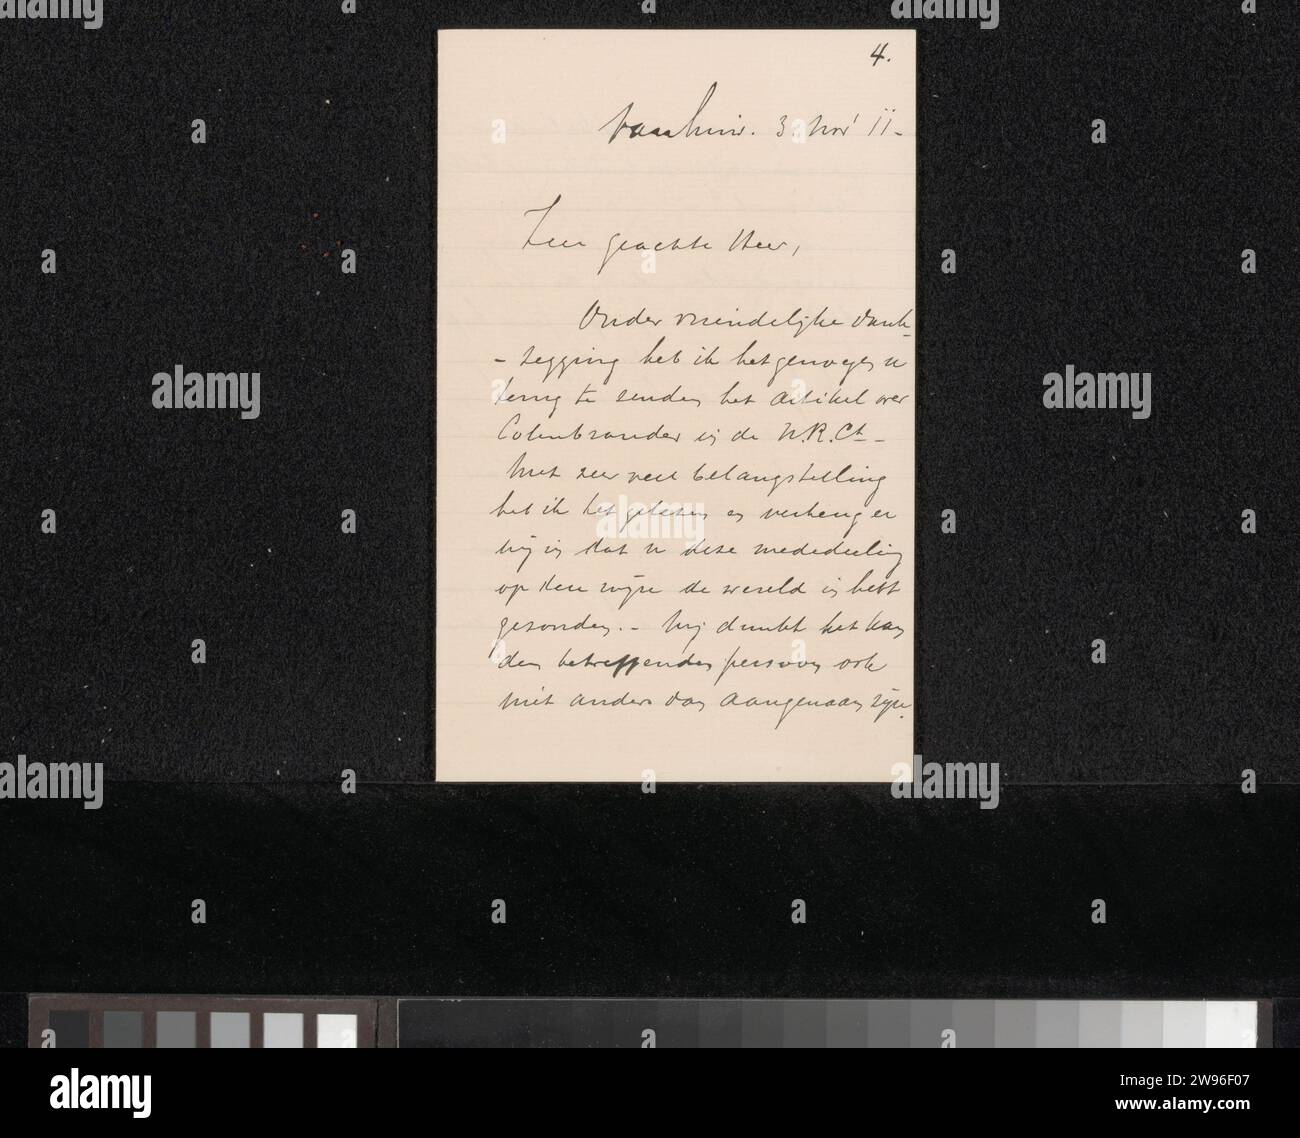 4.
3. Nov' 11.-
Zeer geachte Heer,
Onder vriendelijke dank-
-zegging heb ik het genoegen u
terug te zenden het artikel over
Colenbrander in de N.R.Ct -
Met zeer veel belangstelling
heb ik het gelezen en verheug er
mij in dat u deze mededeeling
op deze wijze de wereld in hebt
gezonden. - Mij dunkt het kan
den betreffenden persoon ook
niet anders dan aangenaam zijn.
alamy
alamy
Image ID: 2W96F07
www.alamy.com